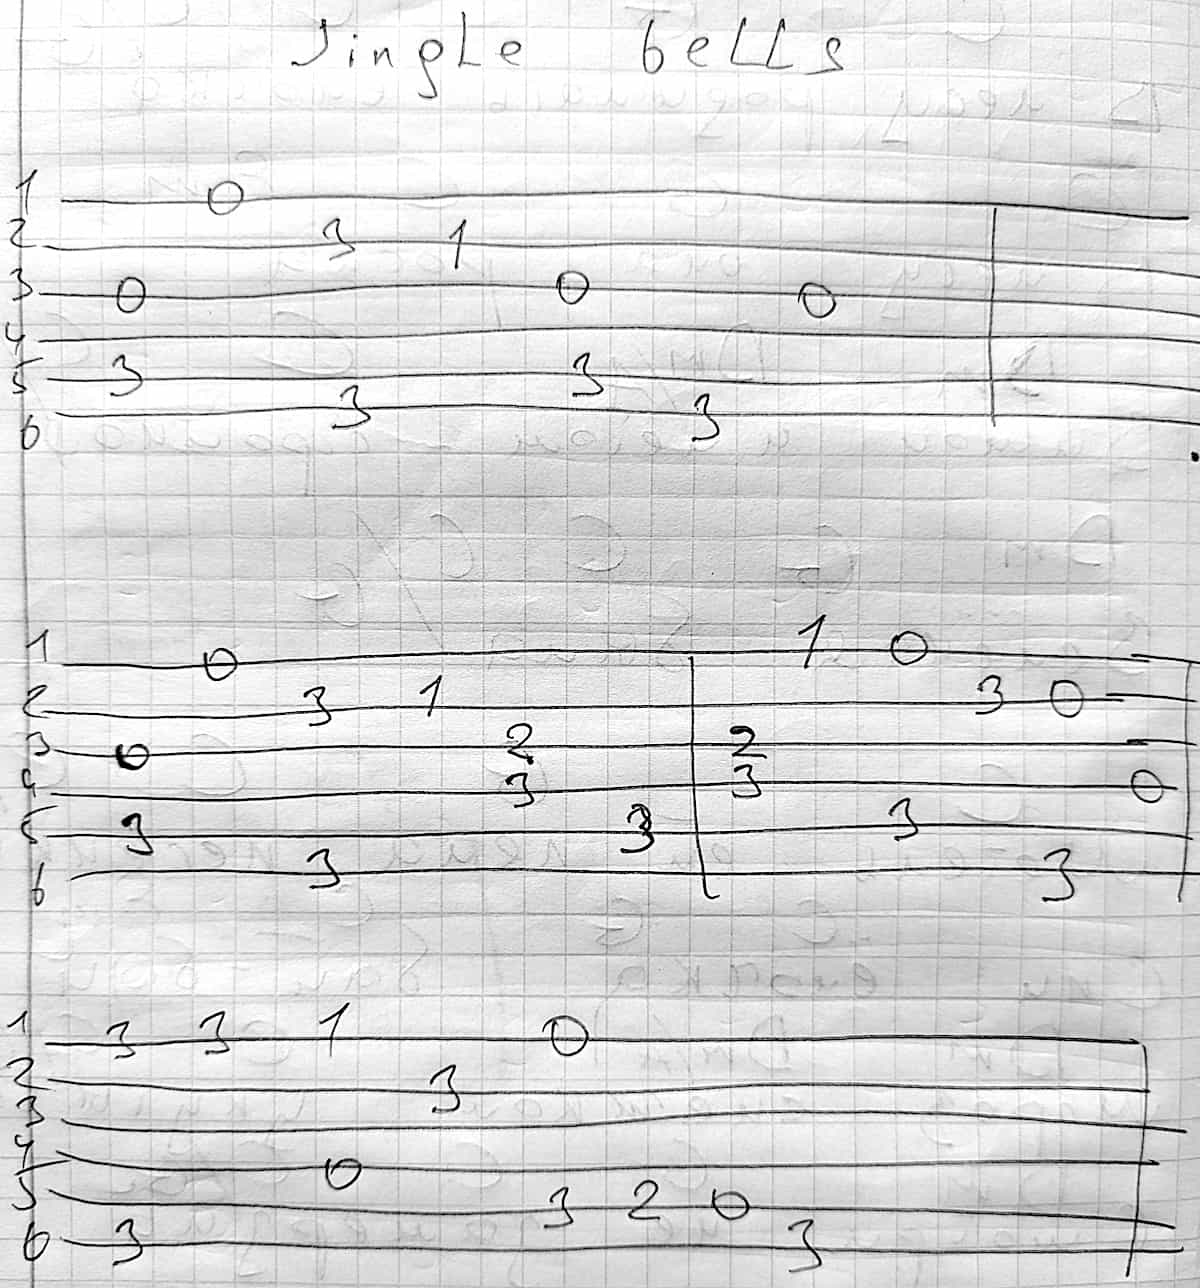 Jingle bells
1 0
2 3 1
3 0 0 0
4
5 3 3
6 3 3
1 0 1 0
2 3 1 3 0
3 0 2 2
4 3 3 0
5 3 3 3
6 3 3
1 3 3 1 0
2 3
3
4 0
5 3 2 0
6 3 3